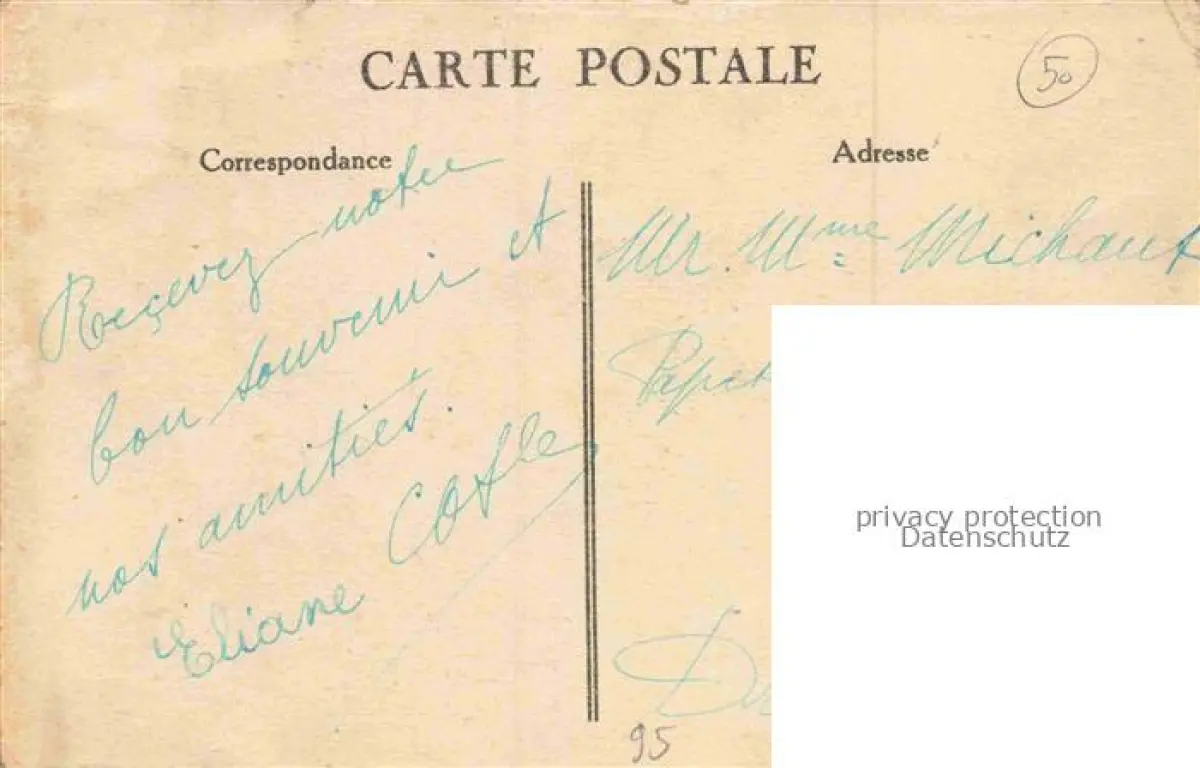 CARTE POSTALE
50
Correspondance
Adresse
Reçevez notre
bon souvenir et
nos amitiés.
Eliane
Mr. Mme Michaut
privacy protection
Datenschutz
95